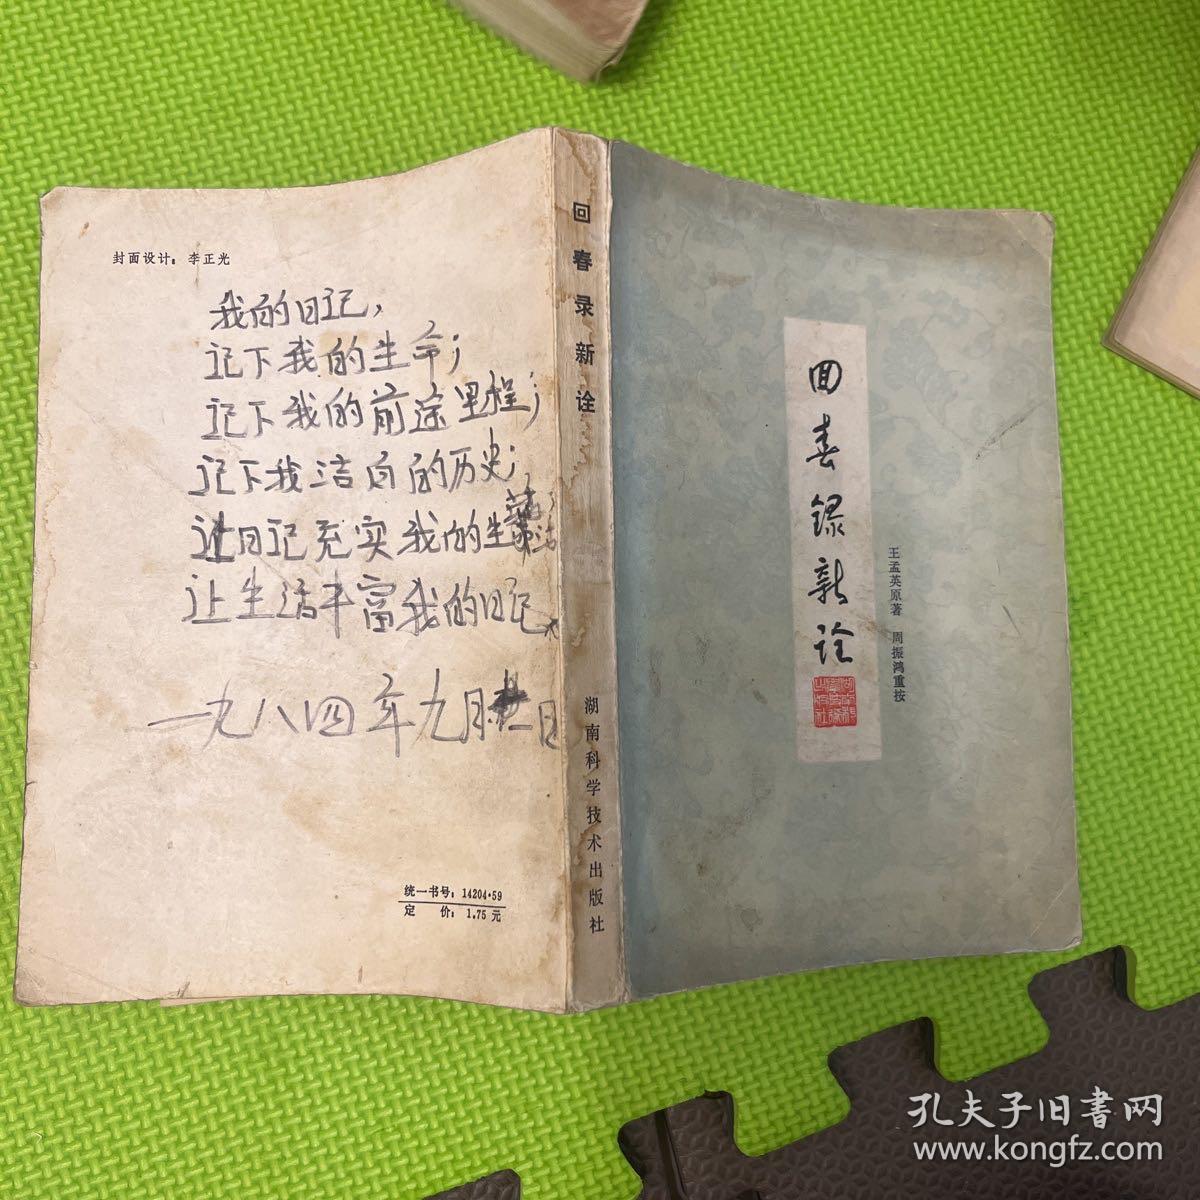 封面设计：李正光
我的日记，
记下我的生命；
记下我的前途里程；
记下我洁白的历史；
让日记充实我的生活，
让生活丰富我的日记。
一九八四年九月廿二日
统一书号：14204·59
定　价：1.75 元
回春录新诠
湖南科学技术出版社
回春録新诠
王孟英原著　周振鸿重按
孔夫子旧書网
www.kongfz.com